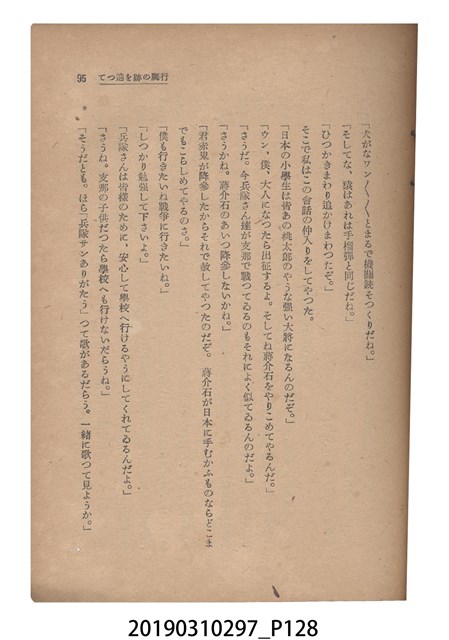 行脚の跡を追つて　95
「犬がなワン〱〱とまるで機關銃そつくりだね。」
「そしてな、猿はあれは手榴彈と同じだね。」
「ひつかきまわり追かけまわつたぞ。」
そこで私はこの會話の仲入りをしてやつた。
「日本の小學生は皆あの桃太郎のやうな强い大將になるんのだぞ。」
「ウン、僕、大人になつたら出征するよ。そしてね蔣介石をやりこめてやるんだ。」
「さうだ。今兵隊さん達が支那で戰つてゐるのもそれによく似てゐるんのだよ。」
「さうかね。蔣介石のあいつ降參しないかね。」
「君赤鬼が降參したからそれで赦してやつたのだぞ。　蔣介石が日本に手むかふものならどこま
でもこらしめてやるのさ。」
「僕も行きたいね戰爭に行きたいね。」
「しつかり勉强して下さいよ。」
「兵隊さんは皆樣のために、安心して學校へ行けるやうにしてくれてゐるんだよ。」
「さうね。支那の子供だつたら學校へも行けないだらうね。」
「そうだとも。ほら「兵隊サンありがたう」つて歌があるだらう。一緒に歌つて見ようか。」
20190310297_P128